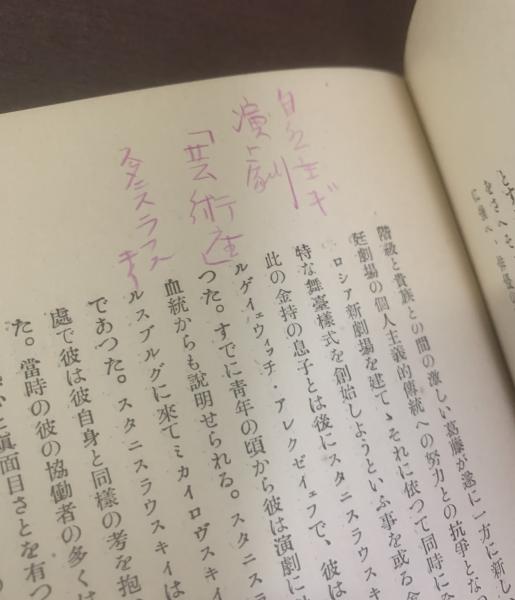 自然主ギ
演劇
「芸術座
スタニスラフスキー
とす
階級と貴族との間の激しい葛藤が遂に一方に新し
廷劇場の個人主義的傳統への努力との抗爭とな
ロシア新劇場を建て、それに依つて同時に
特な舞臺樣式を創始しようといふ事を或る金
此の金持の息子とは後にスタニスラウスキ
ルゲイェウィッチ・アレクゼイェフで、彼は
つた。すでに青年の頃から彼は演劇に
血統からも説明せられる。スタニス
ルスブルグに來てミカイロヴスキイ
であつた。スタニスラウスキイは
處で彼は彼自身と同樣の考を抱
た。當時の彼の協働者の多くは
眞面目さとを有つ